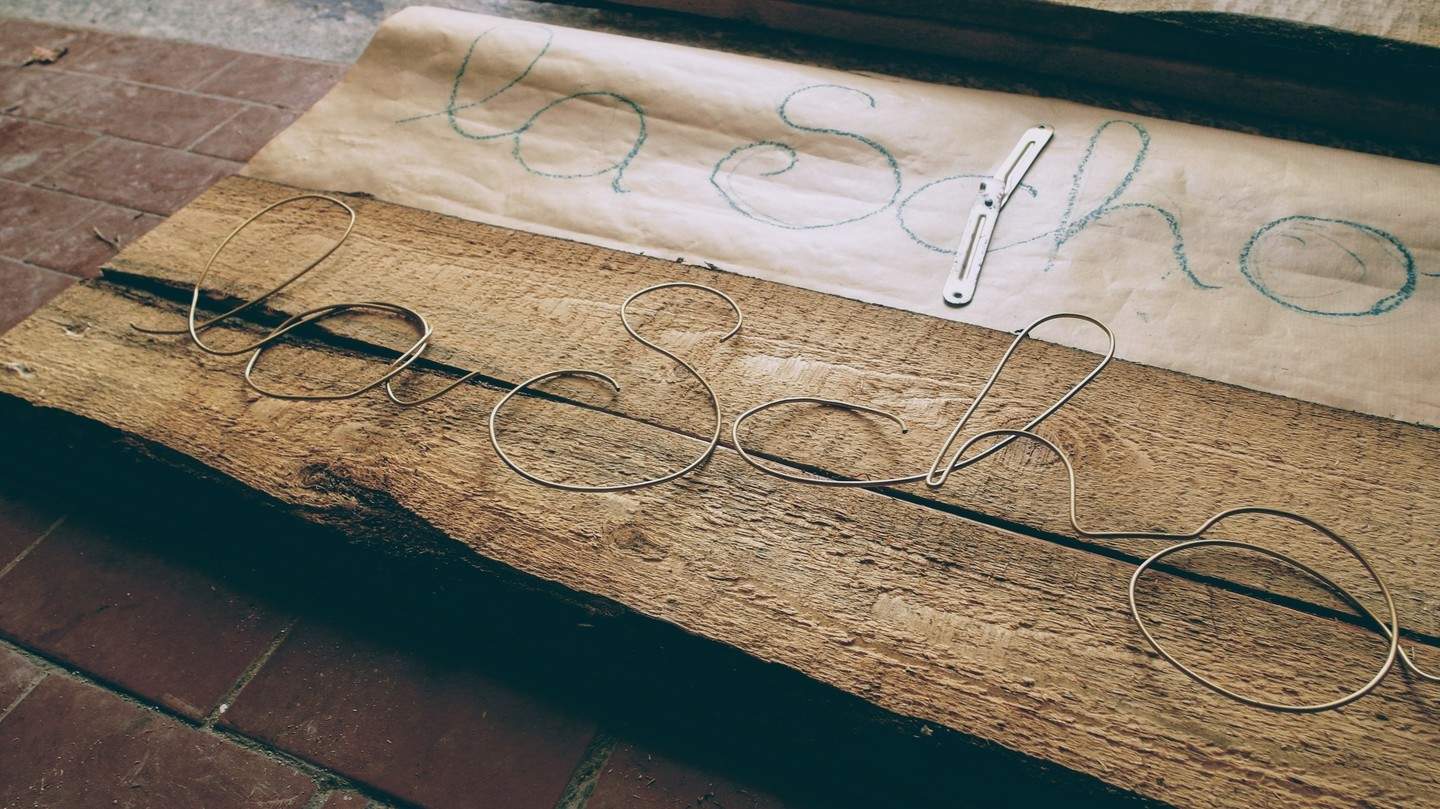 la Scho
la Scho